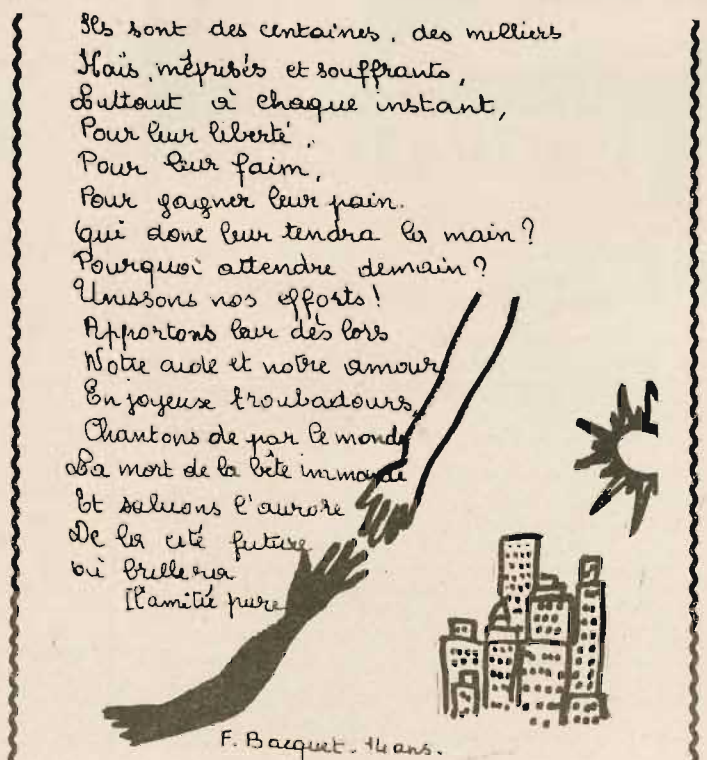 Ils sont des centaines, des milliers
Haïs, méprisés et souffrants,
Luttant à chaque instant,
Pour leur liberté,
Pour leur faim,
Pour gagner leur pain.
Qui donc leur tendra la main ?
Pourquoi attendre demain ?
Unissons nos efforts !
Apportons leur dès lors
Notre aide et notre amour
En joyeuse troubadours,
Chantons de par le monde
La mort de la bête immonde
Et saluons l'aurore
De la cité future
où brillera
[l'amitié pure
F. Bacquet. 14 ans.